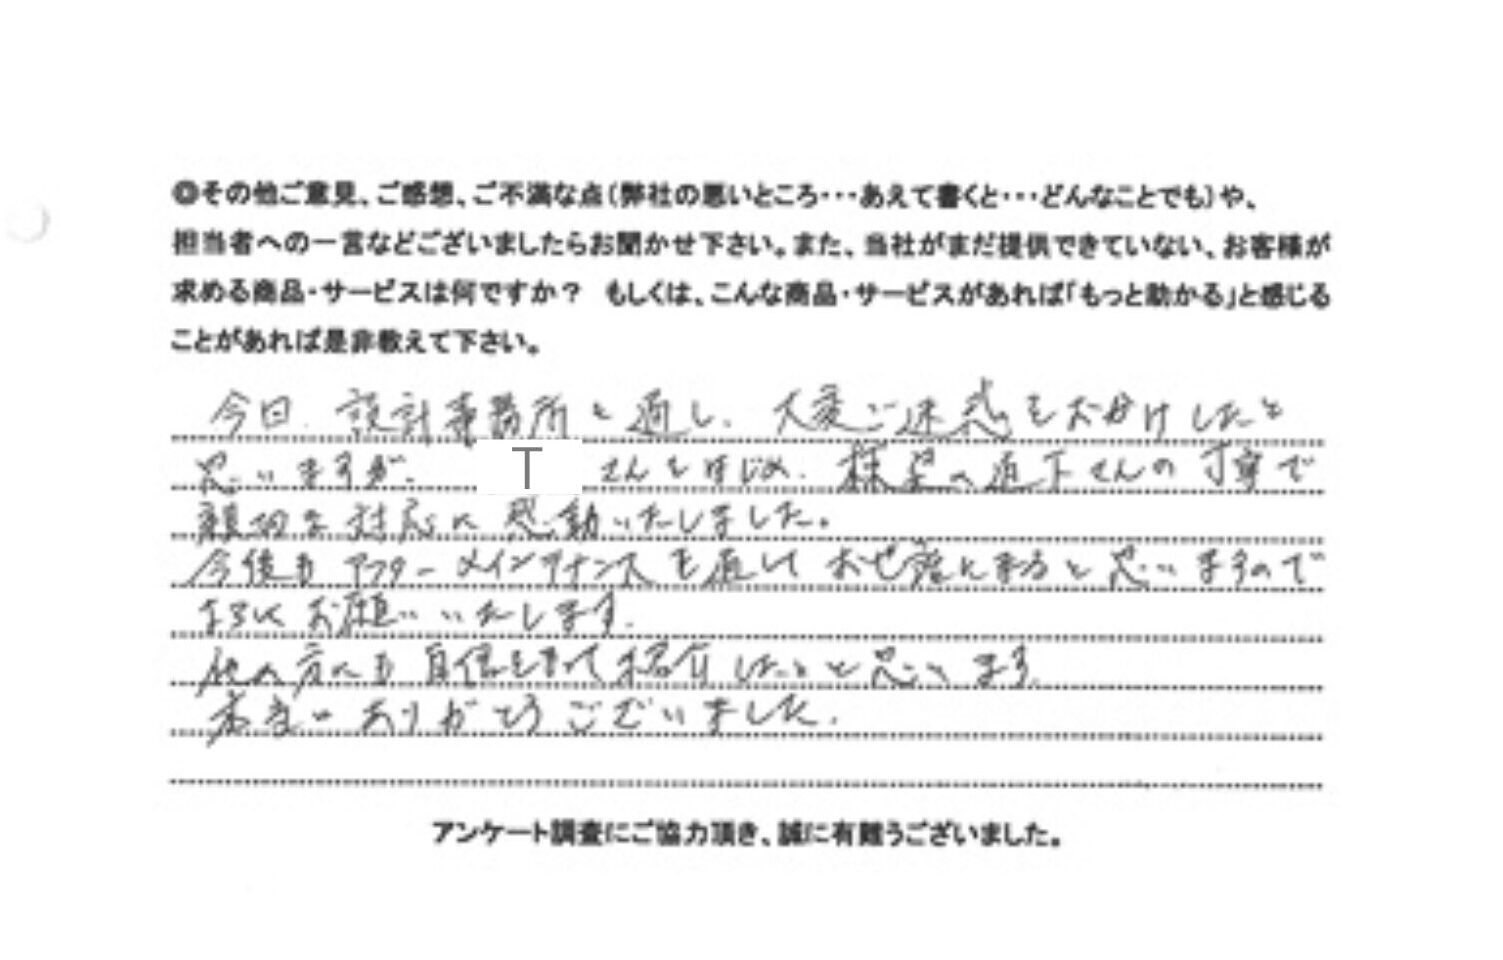 ◎その他ご意見、ご感想、ご不満な点(弊社の悪いところ・・・あえて書くと・・・どんなことでも)や、
担当者への一言などございましたらお聞かせ下さい。また、当社がまだ提供できていない、お客様が
求める商品・サービスは何ですか? もしくは、こんな商品・サービスがあれば「もっと助かる」と感じる
ことがあれば是非教えて下さい。
今回、設計事務所を通し、大変ご迷惑をおかけしたと
思いますが、T さんをはじめ、 さんの丁寧で
親切な対応に感動いたしました。
今後もアフターメインテナンスを通してお世話になると思いますので
よろしくお願いいたします。
他の方にも自信をもって紹介したいと思います。
本当にありがとうございました。
アンケート調査にご協力頂き、誠に有難うございました。